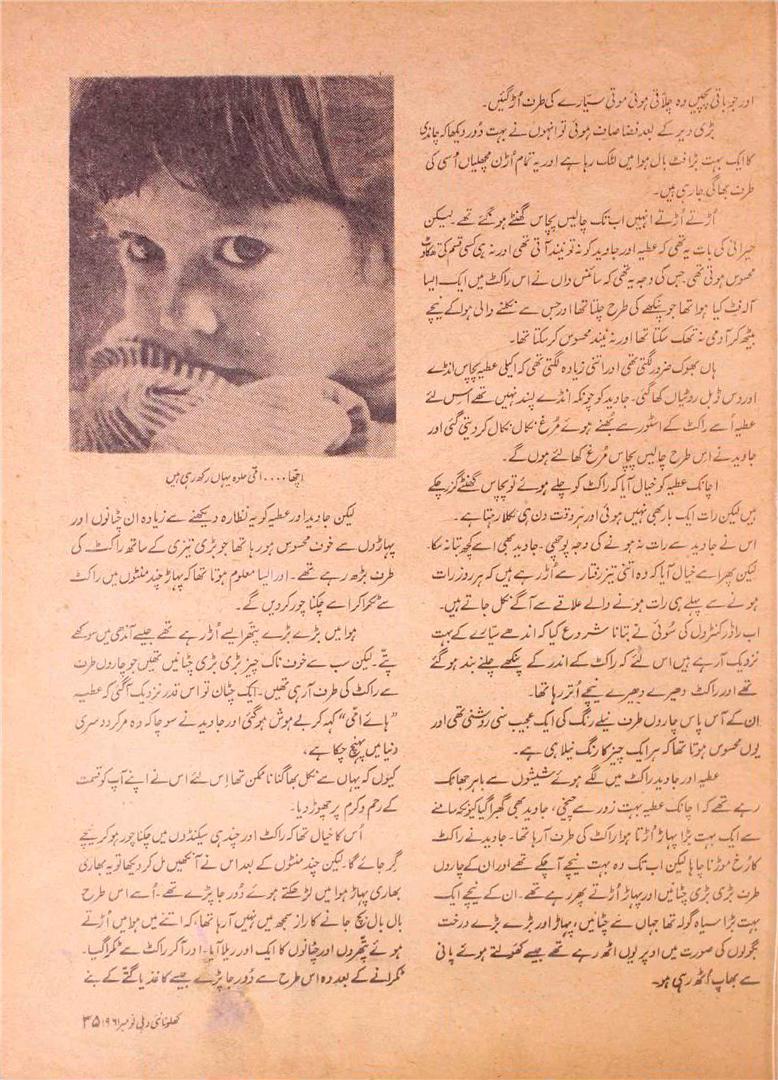 اور جو باقی بچیں وہ چلاتی ہوئی موتی سیارے کی طرف اُڑ گئیں۔
بڑی دیر کے بعد فضا صاف ہوئی تو انہوں نے بہت دُور دیکھا کہ چاندی
کا ایک بہت بڑا فٹ بال ہوا میں لٹک رہا ہے اور یہ تمام اُڑن مچھلیاں اُسی کی
طرف بھاگی جا رہی ہیں۔
اُڑتے اُڑتے انہیں اب تک چالیس پچاس گھنٹے ہو گئے تھے۔ لیکن
حیرانی کی بات یہ تھی کہ عطیہ اور جاوید کو نہ تو نیند آتی تھی اور نہ ہی کسی قسم کی تھکاوٹ
محسوس ہوتی تھی جس کی وجہ یہ تھی کہ سائنس داں نے اس راکٹ میں ایک ایسا
آلہ فٹ کیا ہوا تھا جو پنکھے کی طرح چلتا تھا اور جس سے نکلنے والی ہوا کے نیچے
بیٹھ کر آدمی نہ تھک سکتا تھا اور نہ نیند محسوس کر سکتا تھا۔
ہاں بھوک ضرور لگتی تھی اور اتنی زیادہ لگتی تھی کہ اکیلی عطیہ پچاس انڈے
اور دس ڈبل روٹیاں کھا گئی۔ جاوید کو چونکہ انڈے پسند نہیں تھے اس لئے
عطیہ اُسے راکٹ کے اسٹور سے بھُنے ہوئے مُرغ نکال نکال کر دیتی گئی اور
جاوید نے اس طرح چالیس پچاس مُرغ کھا لئے ہوں گے۔
اچانک عطیہ کو خیال آیا کہ راکٹ کو چلے ہوئے تو پچاس گھنٹے گزر چکے
ہیں لیکن رات ایک بار بھی نہیں ہوئی اور ہر وقت دن ہی نکلا رہتا ہے۔
اس نے جاوید سے رات نہ ہونے کی وجہ پوچھی۔ جاوید بھی اسے کچھ بتا نہ سکا۔
لیکن پھر اسے خیال آیا کہ وہ اتنی تیز رفتار سے اُڑ رہے ہیں کہ ہر روز رات
ہونے سے پہلے ہی رات ہونے والے علاقے سے آگے نکل جاتے ہیں۔
اب راڈر کنٹرول کی سُوئی نے بتانا شروع کیا کہ اندھے سیارے کے بہت
نزدیک آ رہے ہیں اس لئے کہ راکٹ کے اندر کے پنکھے چلنے بند ہو گئے
تھے اور راکٹ دھیرے دھیرے نیچے اُتر رہا تھا۔
ان کے آس پاس چاروں طرف نیلے رنگ کی ایک عجیب سی روشنی تھی اور
یوں محسوس ہوتا تھا کہ ہر ایک چیز کا رنگ نیلا ہی ہے۔
عطیہ اور جاوید راکٹ میں لگے ہوئے شیشوں سے باہر جھانک
رہے تھے کہ اچانک عطیہ بہت زور سے چیخی، جاوید بھی گھبرا گیا کیونکہ سامنے
سے ایک بہت بڑا پہاڑ اُڑتا ہوا راکٹ کی طرف آ رہا تھا۔ جاوید نے راکٹ
کا رُخ موڑنا چاہا لیکن اب تک وہ بہت نیچے آ چکے تھے اور ان کے چاروں
طرف بڑی بڑی چٹانیں اور پہاڑ اُڑتے پھر رہے تھے۔ ان کے نیچے ایک
بہت بڑا سیاہ گولہ تھا جہاں سے چٹانیں، پہاڑ اور بڑے بڑے درخت
بگولوں کی صورت میں اوپر یوں اٹھ رہے تھے جیسے کھولتے ہوئے پانی
سے بھاپ اُٹھ رہی ہو۔
اچھا.... امّی حلوہ یہاں رکھ رہی ہیں
لیکن جاوید اور عطیہ کو یہ نظارہ دیکھنے سے زیادہ ان چٹانوں اور
پہاڑوں سے خوف محسوس ہو رہا تھا جو بڑی تیزی کے ساتھ راکٹ کی
طرف بڑھ رہے تھے۔ اور ایسا معلوم ہوتا تھا کہ پہاڑ چند منٹوں میں راکٹ
سے ٹکرا کر اسے چکنا چور کر دیں گے۔
ہوا میں بڑے بڑے پتھر ایسے اُڑ رہے تھے جیسے آندھی میں سوکھے
پتے۔ لیکن سب سے خوف ناک چیز بڑی بڑی چٹانیں تھیں جو چاروں طرف
سے راکٹ کی طرف آ رہی تھیں۔ ایک چٹان تو اس قدر نزدیک آ گئی کہ عطیہ
”ہائے امّی“ کہہ کر بے ہوش ہو گئی اور جاوید نے سوچا کہ وہ مر کر دوسری
دنیا میں پہنچ چکا ہے،
کیوں کہ یہاں سے نکل بھاگنا ناممکن تھا اِس لئے اس نے اپنے آپ کو قسمت
کے رحم و کرم پر چھوڑ دیا۔
اُس کا خیال تھا کہ راکٹ اور چند ہی سیکنڈوں میں چکنا چور ہو کر نیچے
گر جائے گا۔ لیکن چند منٹوں کے بعد اس نے آنکھیں مل کر دیکھا تو یہ بھاری
بھاری پہاڑ ہوا میں لڑھکتے ہوئے دُور جا پڑے تھے۔ اُسے اس طرح
بال بال بچ جانے کا راز سمجھ میں نہیں آ رہا تھا کہ اتنے میں ہوا میں اُڑتے
ہوئے پتھروں اور چٹانوں کا ایک اور ریلا آیا۔ اور آ کر راکٹ سے ٹکرا گیا۔
ٹکرانے کے بعد وہ اس طرح سے دُور جا پڑے جیسے کاغذ یا گتے کے بنے
کھلونا نئی دہلی نومبر ۱۹۶۱ ۳۵